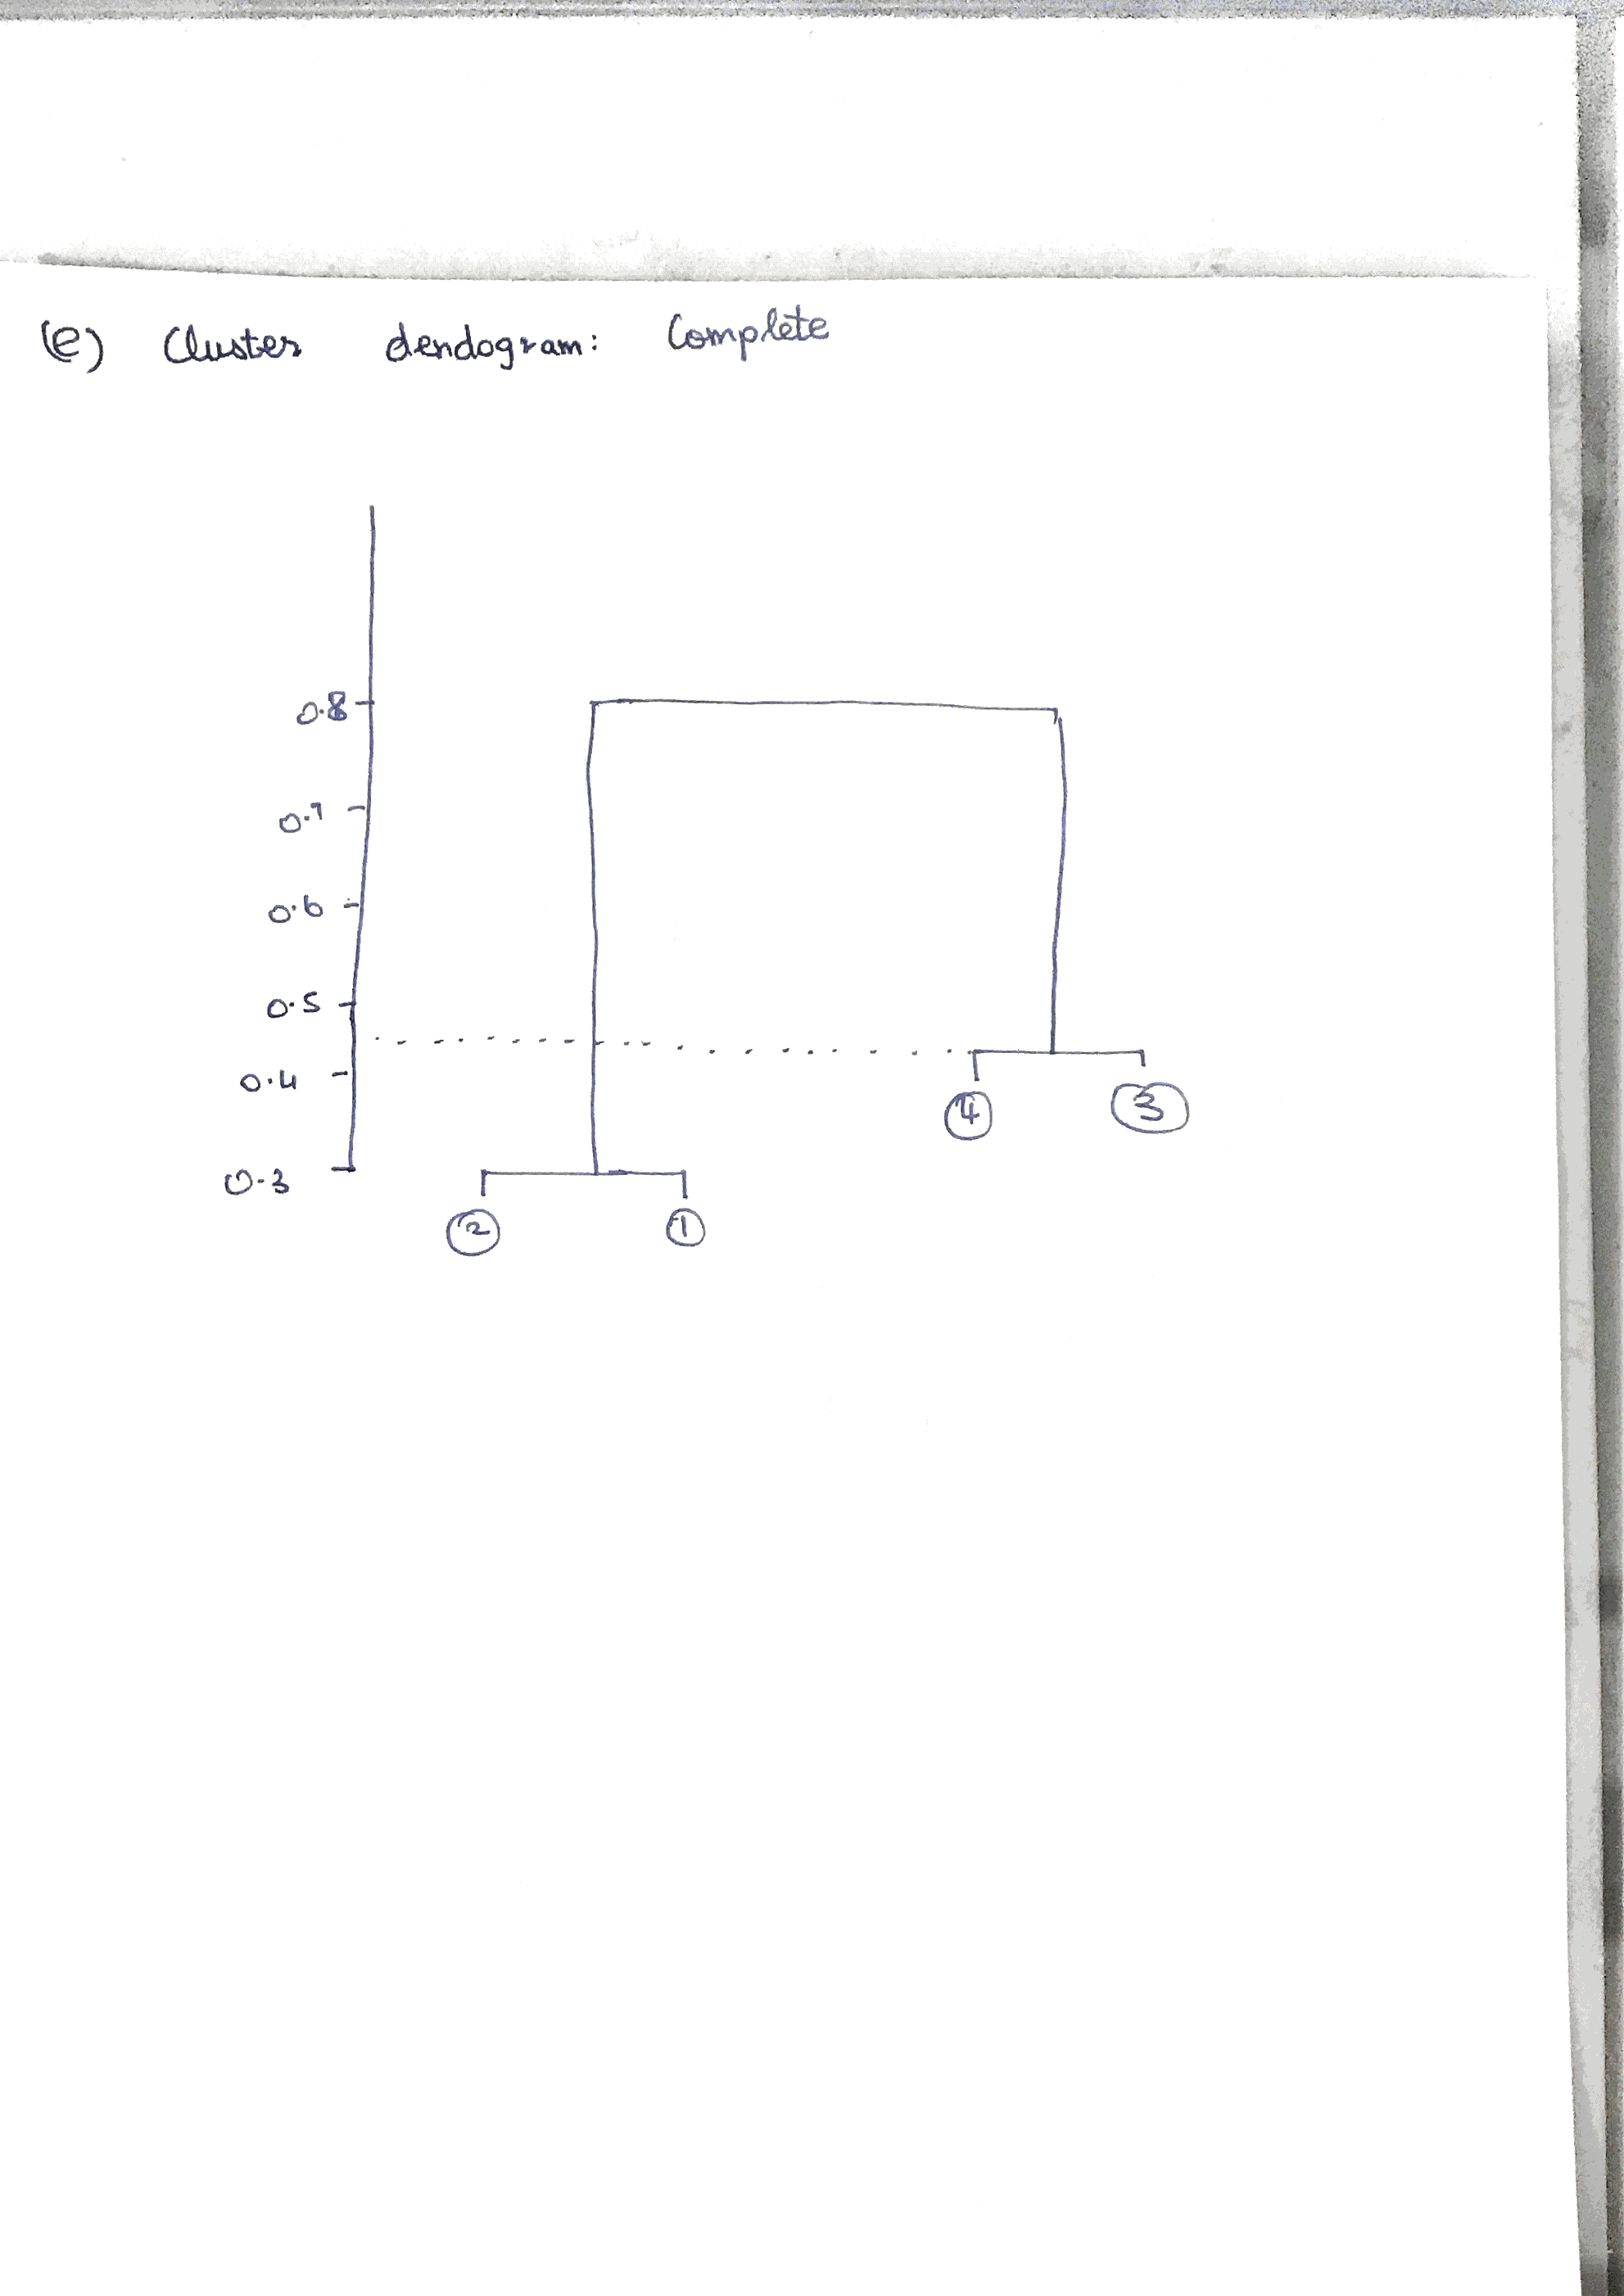 (e) Cluster dendogram: Complete
0.8
0.7
0.6
0.5
0.4
4 3
0.3
2 1